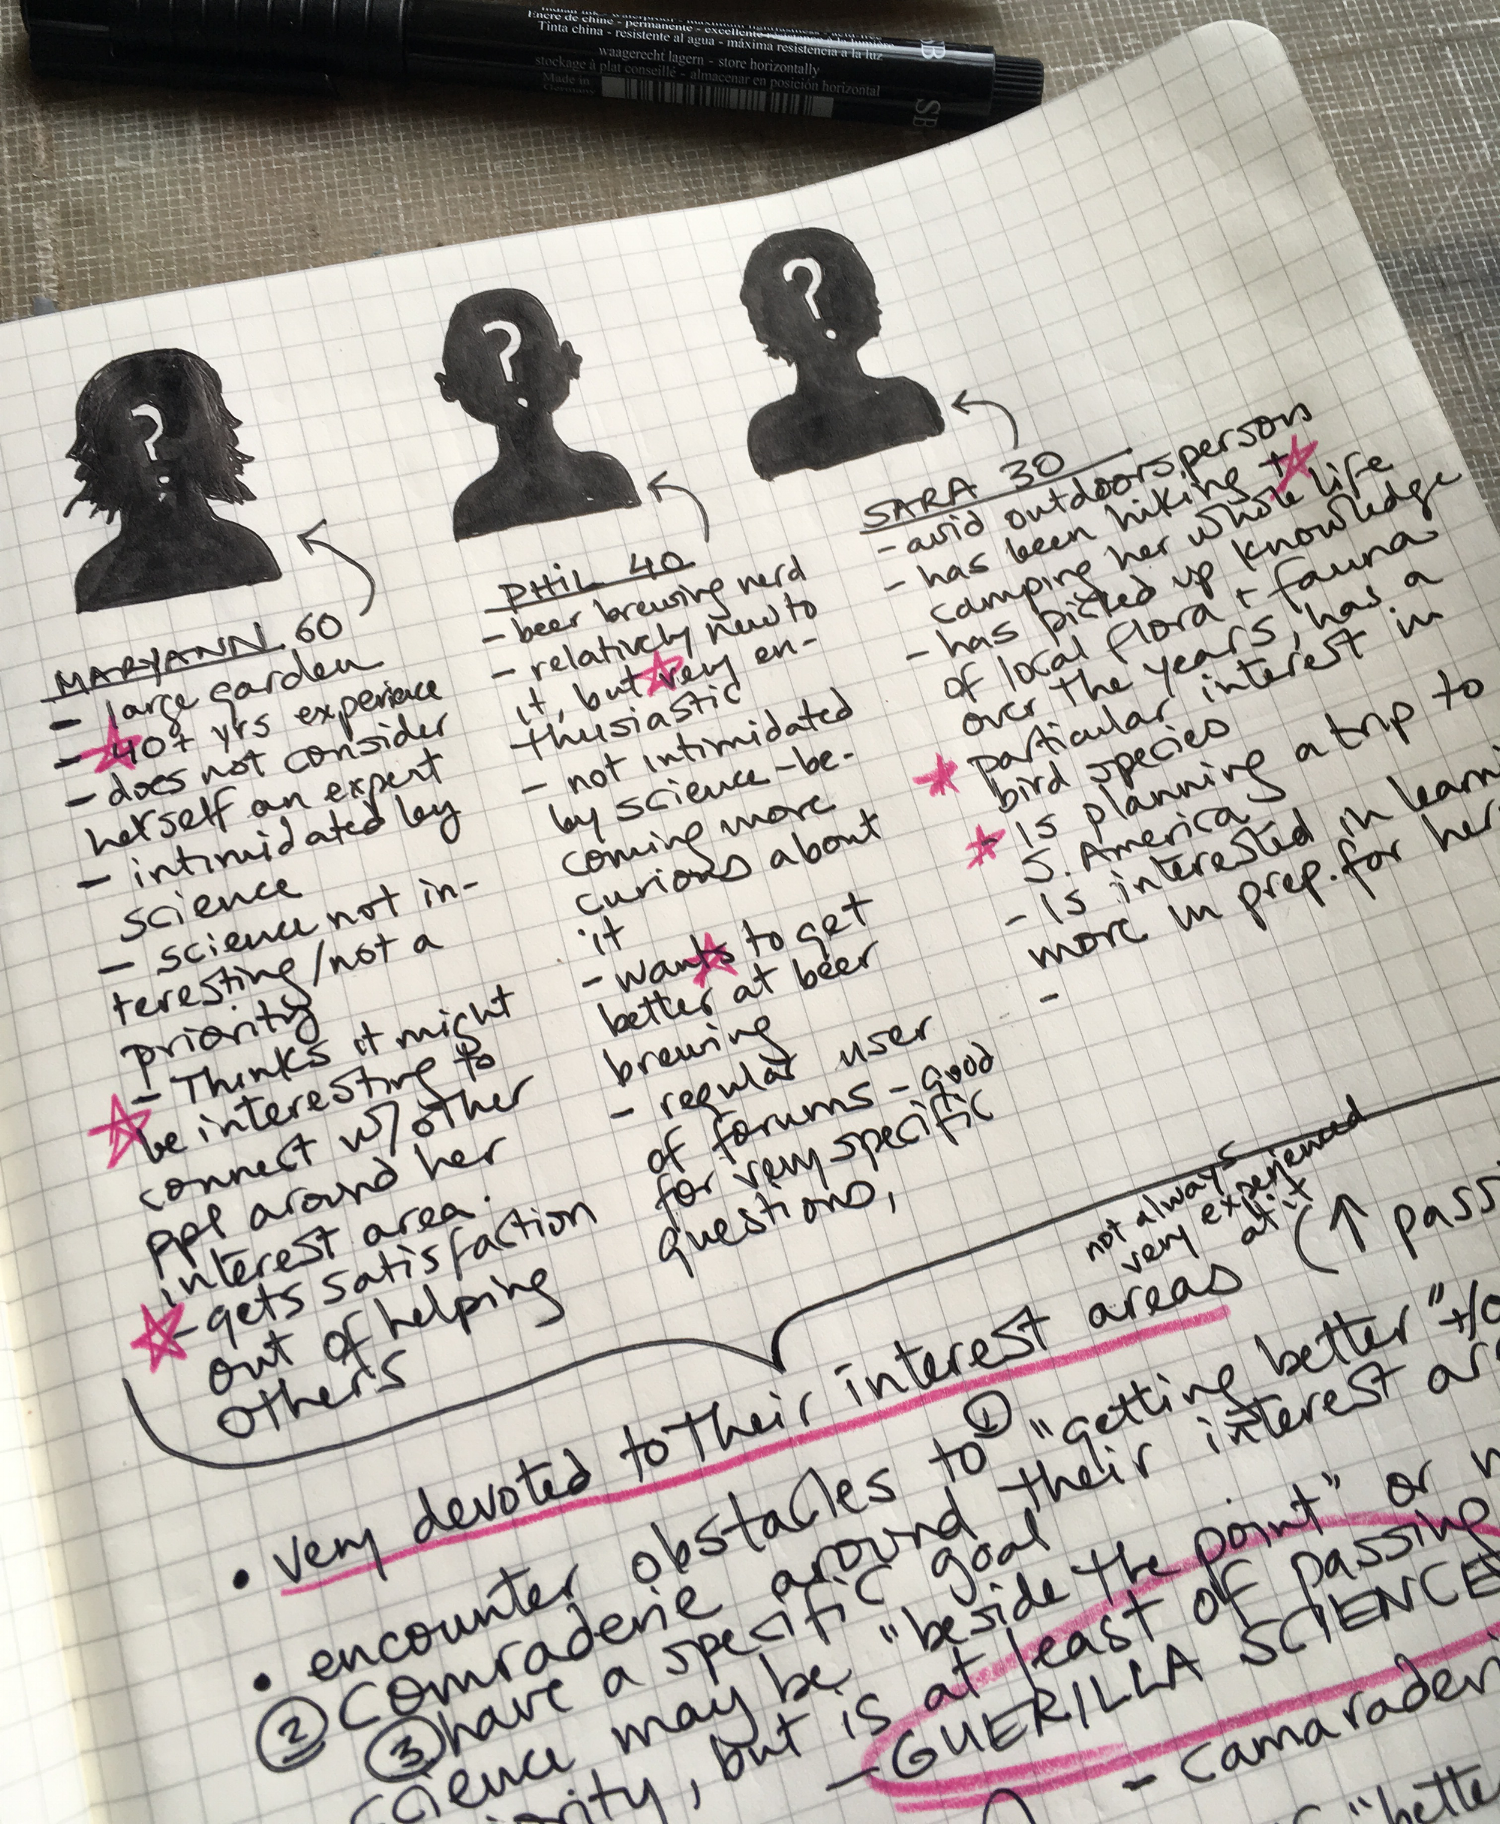 Encre de chine - permanente - excellente
Tinta china - resistente al agua - máxima resistencia a la luz
waagerecht lagern - store horizontally
stockage à plat conseillé - almacenar en posición horizontal
Made in
Germany
SB
?
?
?
MARYANN 60
- large garden
- 40+ yrs experience
- does not consider
herself an expert
- intimidated by
science
- science not in-
teresting/not a
priority
- Thinks it might
be interesting to
connect w/ other
ppl around her
interest area.
- gets satisfaction
out of helping
others
PHIL 40
- beer brewing nerd
- relatively new to
it, but very en-
thusiastic
- not intimidated
by science - be-
coming more
curious about
it
- wants to get
better at beer
brewing
- regular user
of forums - good
for very specific
questions,
SARA 30
- avid outdoorsperson
- has been hiking +
camping her whole life
- has picked up knowledge
of local flora + fauna
over the years, has a
particular interest in
bird species
- is planning a trip to
S. America
- is interested in learni
more in prep. for her
-
not always
very experienced
at it
• very devoted to their interest areas (↑ pass
• encounter obstacles to ① "getting better" +/o
② comraderie around their interest ar
③ have a specific goal
science may be "beside the point" or
iority, but is at least of passing
- GUERILLA SCIENCE
- camaraderi
"bette